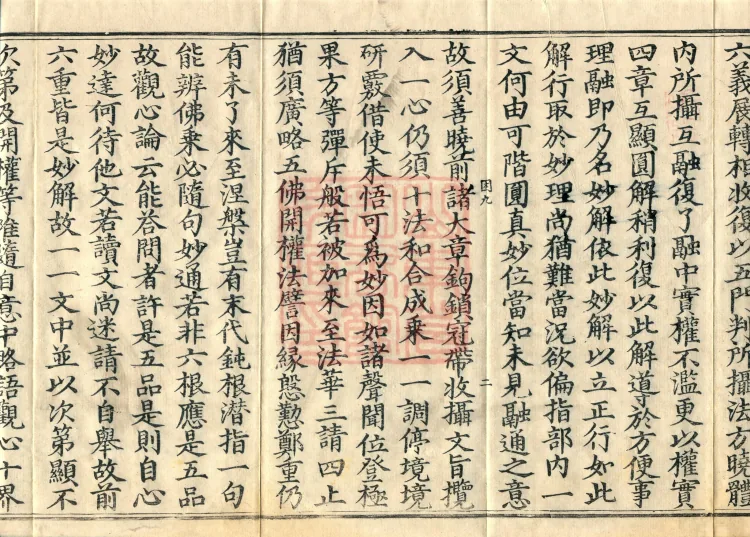 六義展轉相收復以五門判所攝法方曉體
內所攝互融復了融中實權不濫更以權實
四章互顯圓解稍利復以此解導於方便事
理融即乃名妙解依此妙解以立正行如此
解行取於妙理尚猶難當況欲偏指部內一
文何由可階圓真妙位當知未見融通之意
九 二
故須善曉前諸大章鉤鎖冠帶收攝文旨攬
入一心仍須十法和合成乘一一調停境境
研覈借使未悟可爲妙因如諸聲聞位登極
果方等彈斥般若被加來至法華三請四止
猶須廣略五佛開權法譬因緣慇懃鄭重仍
有未了來至涅槃豈有末代鈍根潛指一句
能辨佛乘必隨句妙通若非六根應是五品
故觀心論云能答問者許是五品是則自心
妙達何待他文若讀文尚迷請不自舉故前
六重皆是妙解故一一文中並以次第顯不
次第及開權等唯隨自意中略語觀心十界